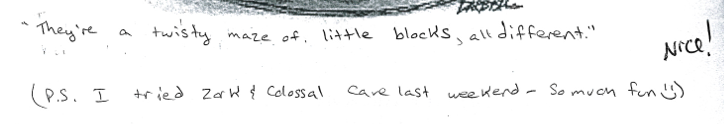 "They're a twisty maze of little blocks, all different."
Nice!
(P.S. I tried Zork & Colossal Cave last weekend - So much fun :))